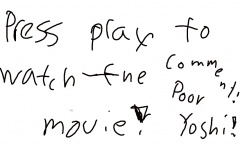 Press play to
watch the
movie!
Comment!
Poor
Yoshi!